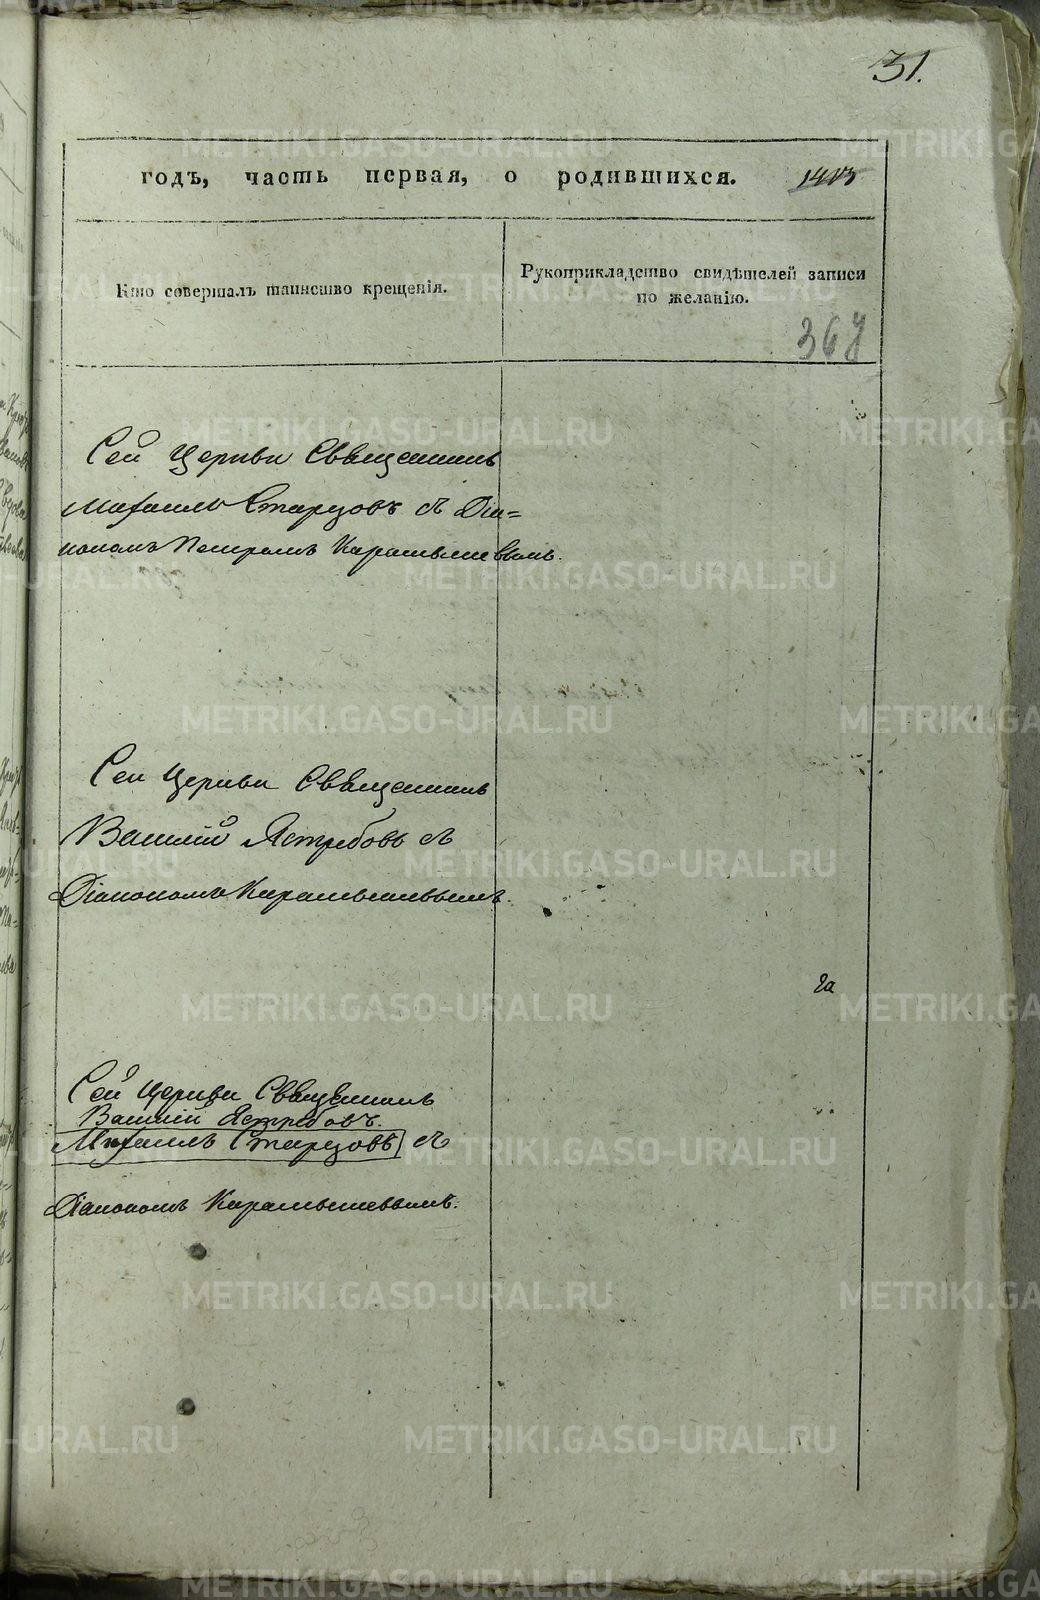 31.
годъ, часть первая, о родившихся.
Кто совершалъ таинство крещенія.
Рукоприкладство свидѣтелей записи
по желанію.
367
Сей Церкви Священникъ
Михаилъ Старцовъ съ Діа=
кономъ Петромъ Карамышевымъ.
Сей Церкви Священникъ
Василій Ястребовъ съ
Діакономъ Карамышевымъ.
Сей Церкви Священникъ
Василій Ястребовъ.
Михаилъ Старцовъ съ
Діакономъ Карамышевымъ.
METRIKI.GASO-URAL.RU